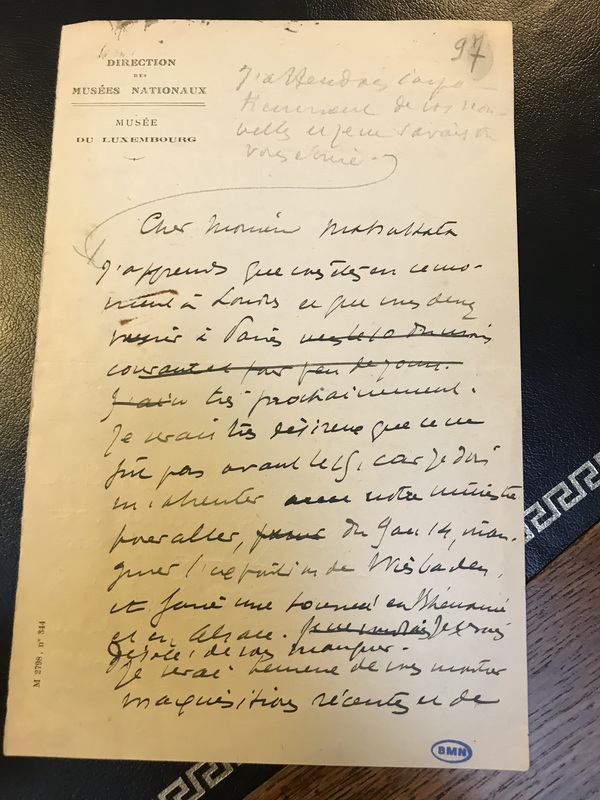 97
DIRECTION
DES
MUSÉES NATIONAUX
MUSÉE
DU LUXEMBOURG
J'attendrais
de vos nou-
velles et je
Cher Monsieur Matsukata
J'apprends que vous êtes en ce mo-
ment à Londres et que vous devez
venir à Paris vers le 10 du mois
courant et pour peu de jours.
J'ai très prochainement.
Je serais très désireux que ce ne
fût pas avant le 15, car je dois
m'absenter avec notre ministre
pour aller, pour du 9 au 14, inau-
gurer l'exposition de Wiesbaden,
et faire une tournée en Rhénanie
et en Alsace. Je serais
désolé de vous manquer.
Je serai heureux de vous montrer
mes acquisitions récentes et de
M 2798. n° 344
BMN